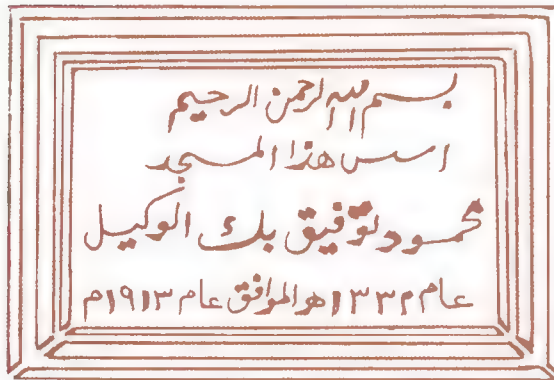 بسم الله الرحمن الرحيم
اسس هذا المسجد
محمود توفيق بك الوكيل
عام ١٣٣٢ هـ الموافق عام ١٩١٣م